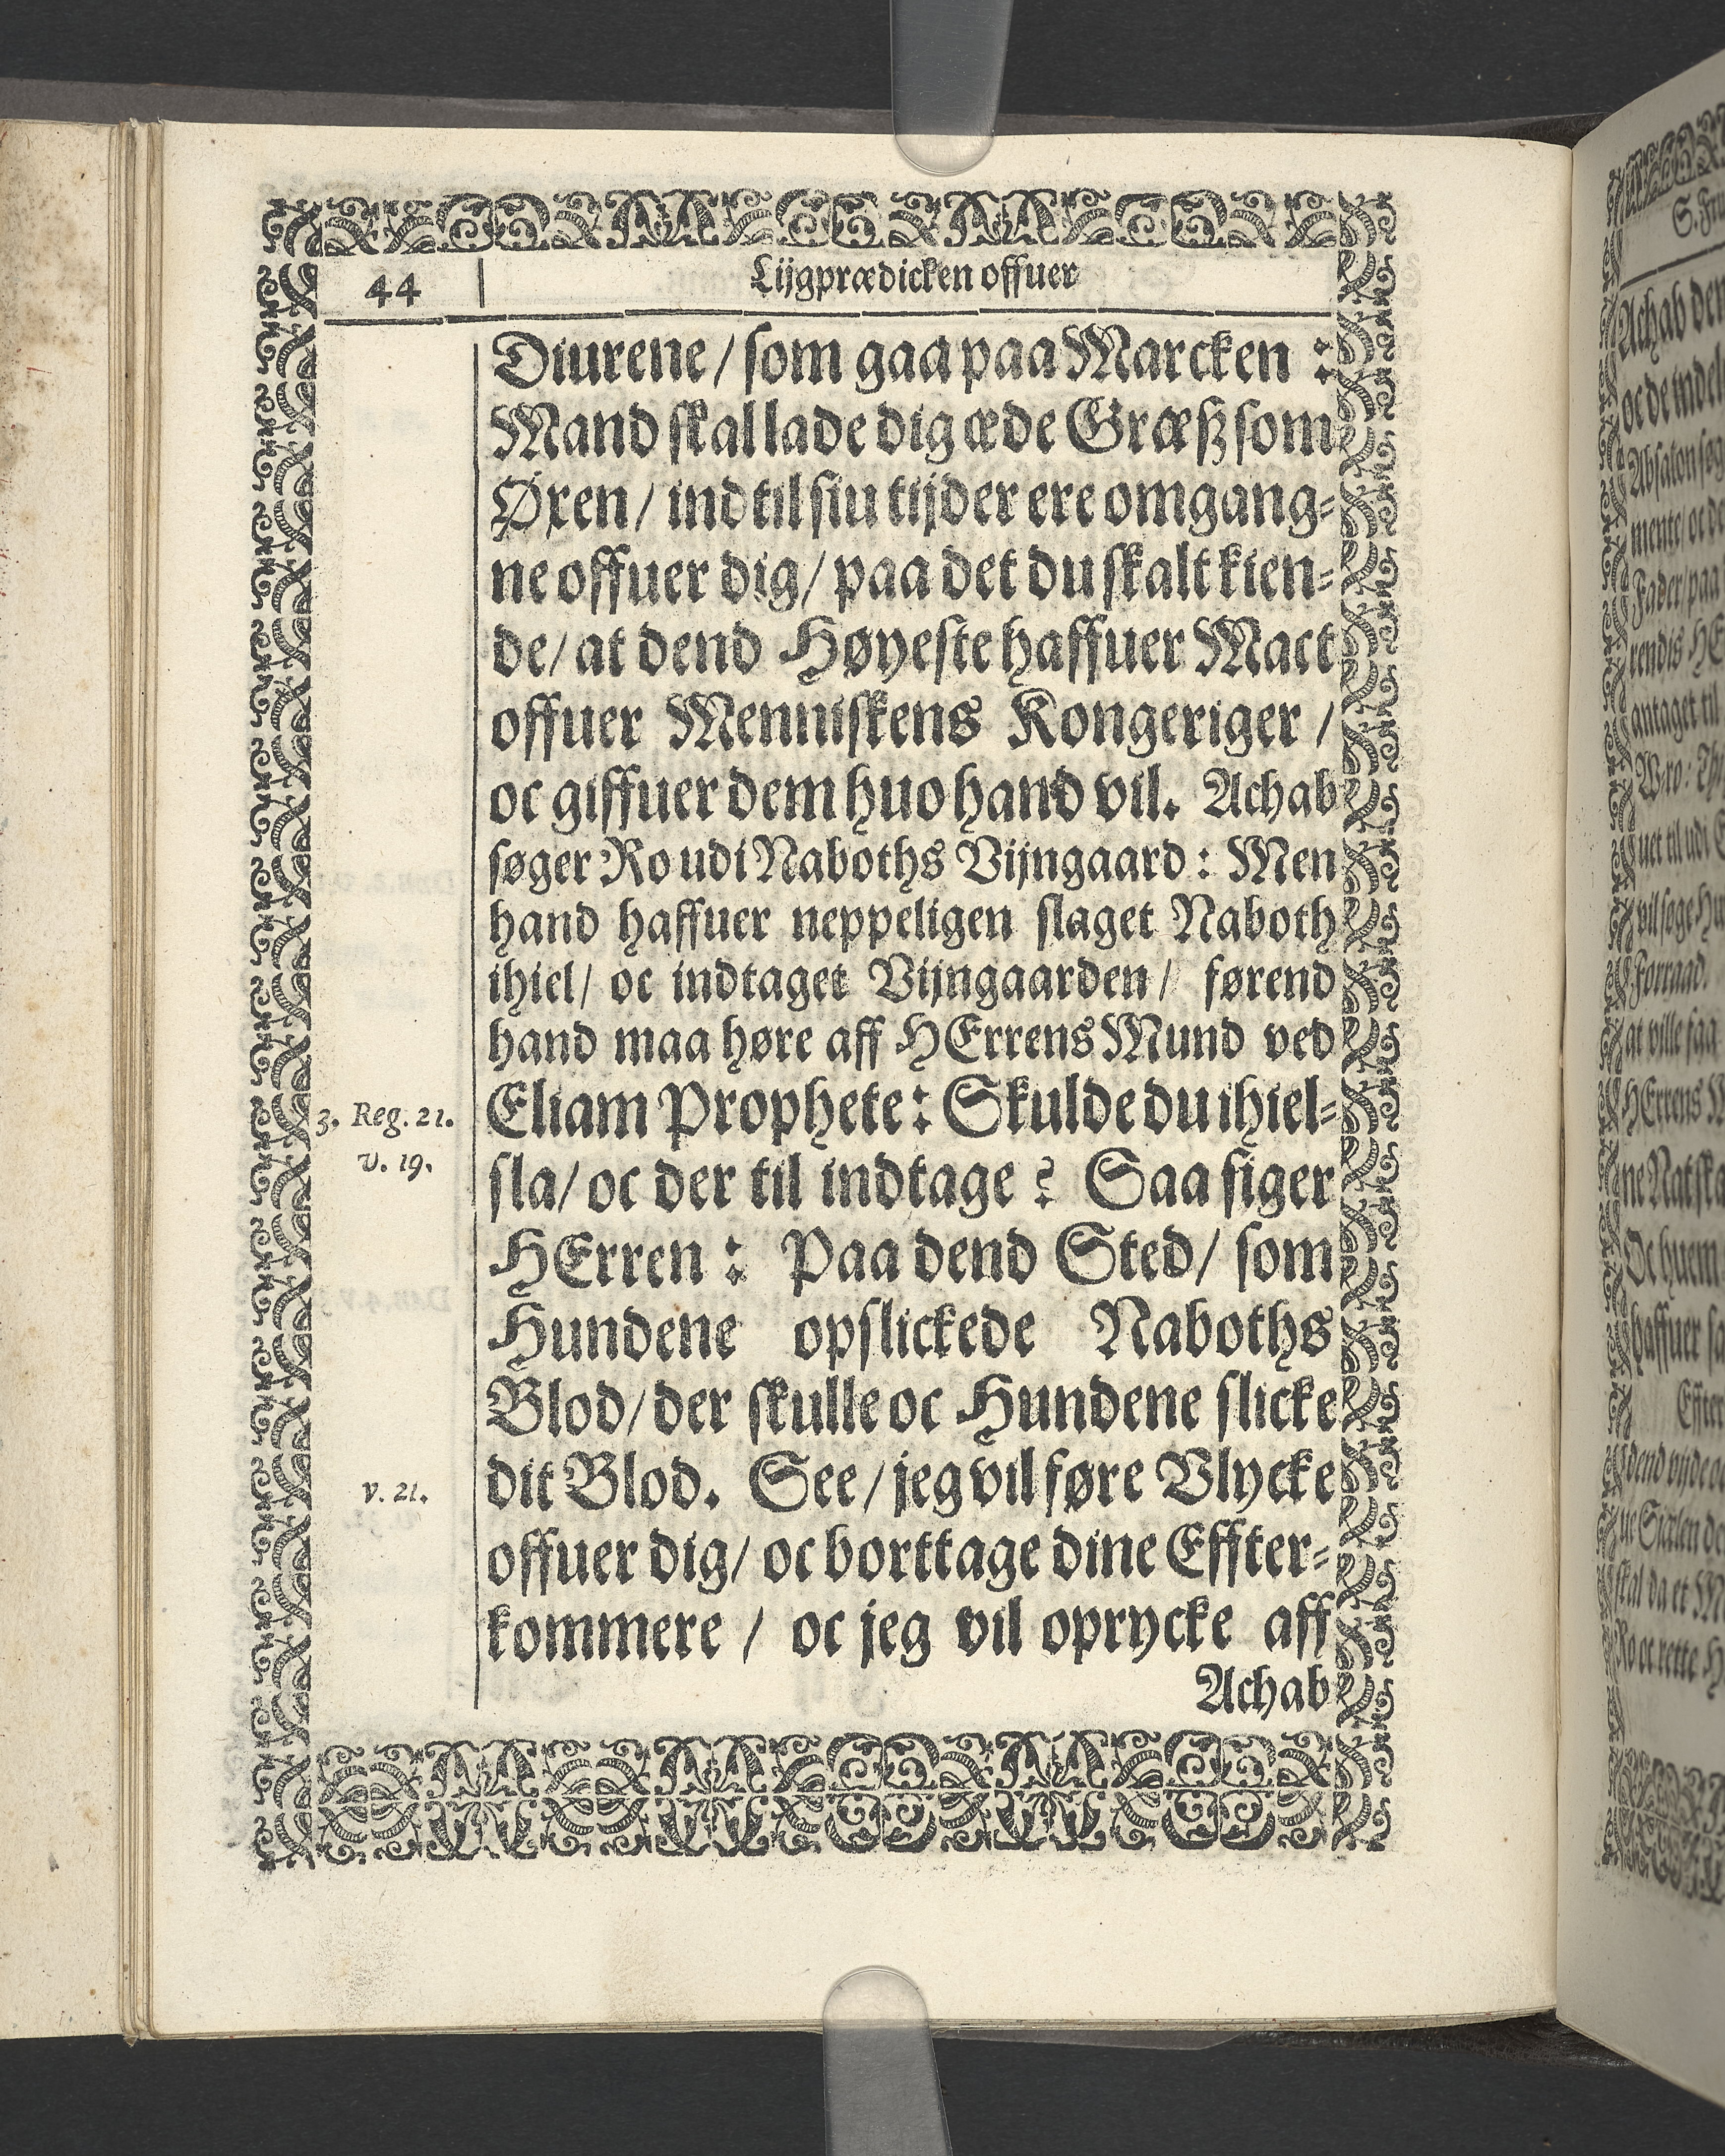 44
Lijgprædicken offuer
Diurene / som gaa paa Marcken :
Mand skal lade dig æde Græß som
Øxen / indtil siu tijder ere omgang=
ne offuer dig / paa det du skalt kien=
de / at dend Høyeste haffuer Mact
offuer Menniskens Kongeriger /
oc giffuer dem huo hand vil. Achab
søger Ro udi Naboths Vijngaard : Men
hand haffuer neppeligen slaget Naboth
ihiel / oc indtaget Vijngaarden / førend
hand maa høre aff HErrens Mund ved
3. Reg. 21.
Eliam Prophete : Skulde du ihiel=
v. 19.
sla / oc der til indtage ? Saa siger
HErren : Paa dend Sted / som
Hundene opslickede Naboths
Blod / der skulle oc Hundene slicke
v. 21.
dit Blod. See / jeg vil føre Vlycke
offuer dig / oc borttage dine Effter=
kommere / oc jeg vil oprycke aff
Achab